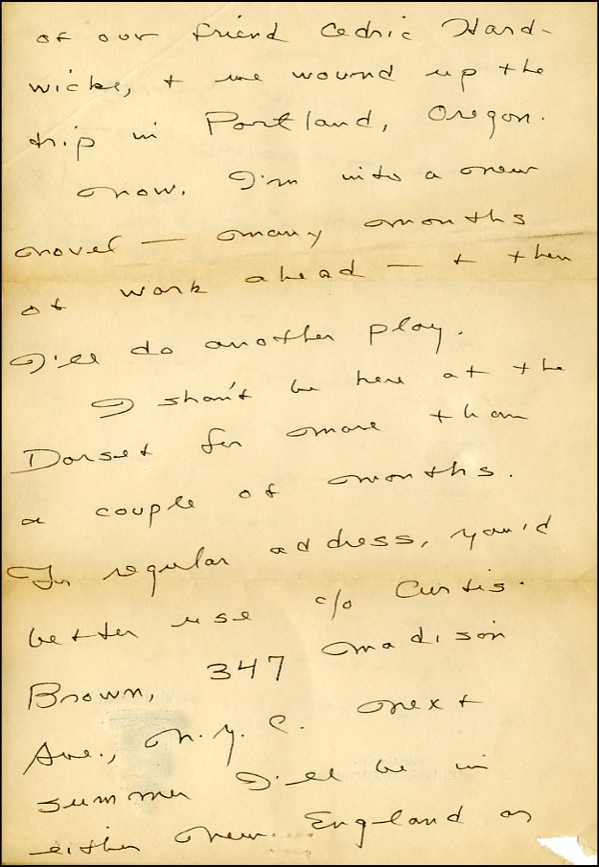 of our friend Cedric Hard-
wicke, & we wound up the
trip in Portland, Oregon.
Now, I'm into a new
novel — many months
of work ahead — & then
I'll do another play.
I shan't be here at the
Dorset for more than
a couple of months.
For regular address, you'd
better use c/o Curtis
Brown, 347 Madison
Ave., N.Y.C. Next
summer I'll be in
either New England or